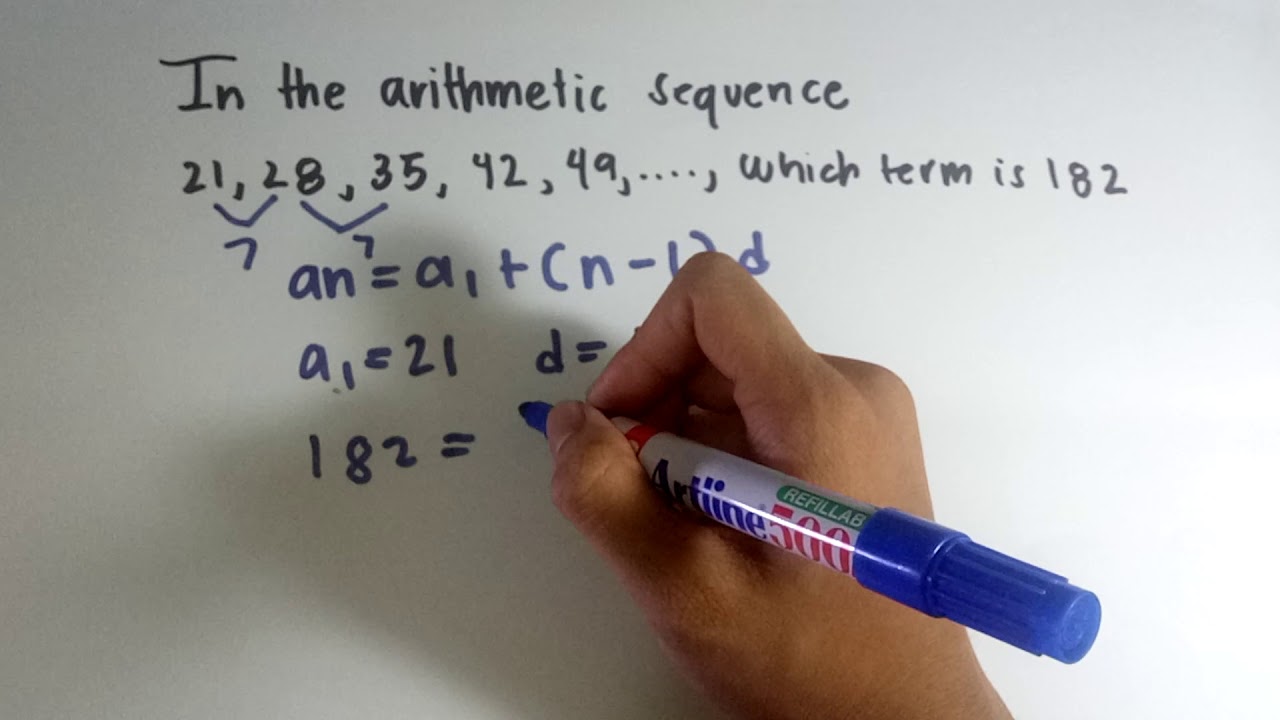 In the arithmetic sequence
21, 28, 35, 42, 49, ...., which term is 182
7 7
an = a₁ + (n - 1) d
a₁ = 21 d =
182 =
Artline 500
REFILLAB